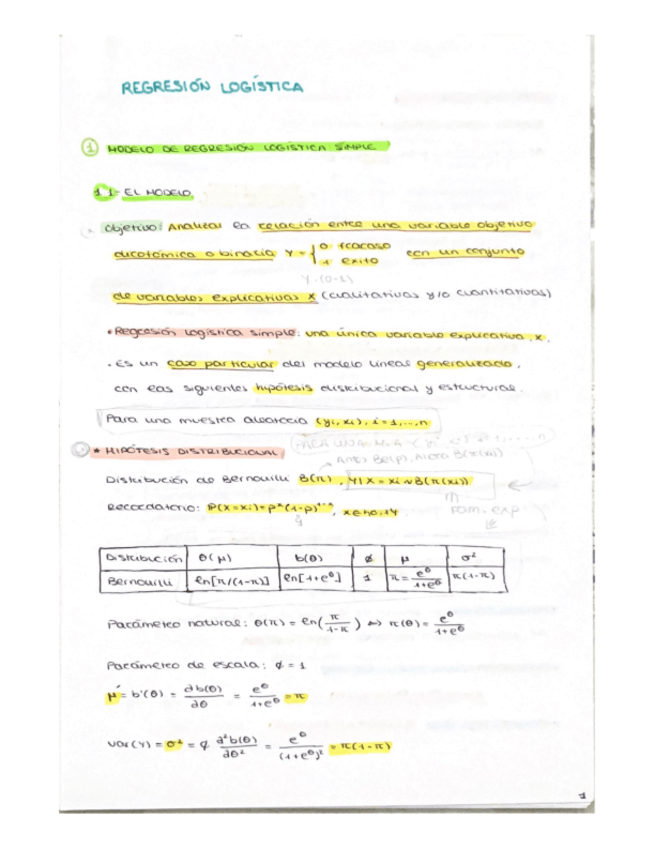 REGRESIÓN LOGÍSTICA
1 MODELO DE REGRESIÓN LOGÍSTICA SIMPLE
1.1- EL MODELO
Objetivo: Analizar la relación entre una variable objetivo
dicotómica o binaria Y = { 0 fracaso 1 éxito con un conjunto
Y-(0-1)
de variables explicativas X (cualitativas y/o cuantitativas)
• Regresión logística simple: una única variable explicativa, X.
• Es un caso particular del modelo lineal generalizado,
con las siguientes hipótesis distribucional y estructural.
Para una muestra aleatoria (yi, xi), i = 1, ..., n
* HIPÓTESIS DISTRIBUCIONAL
PARA UNA M.A (yi, xi) i = 1, ..., n
Antes Be(p), Ahora B(π(xi))
Distribución de Bernouilli B(π), Y|X = xi ~ B(π(xi))
Recordatorio: P(X=xi) = p^x (1-p)^1-x, x∈{0,1}
fam. exp
Distribución θ(μ) b(θ) ϕ μ σ²
Bernouilli ln[π/(1-π)] ln[1+e^θ] 1 π = e^θ/(1+e^θ) π(1-π)
Parámetro natural: θ(π) = ln(π/(1-π)) ⇔ π(θ) = e^θ/(1+e^θ)
Parámetro de escala: ϕ = 1
μ = b'(θ) = ∂b(θ)/∂θ = e^θ/(1+e^θ) = π
Var(Y) = σ² = ϕ ∂²b(θ)/∂θ² = e^θ/(1+e^θ)² = π(1-π)
1